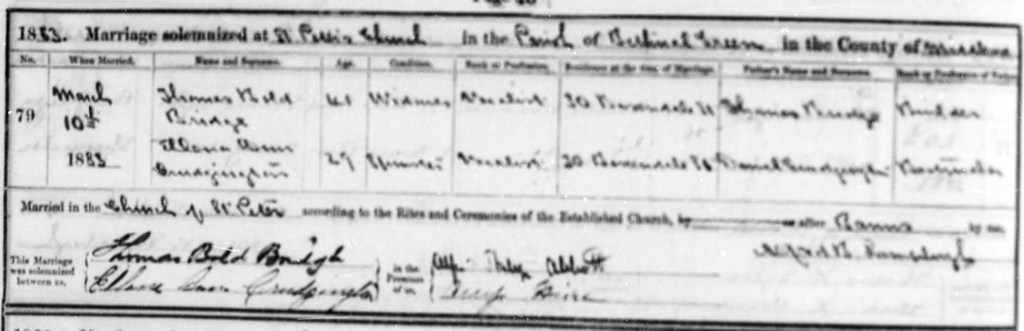 1883. Marriage solemnized at St Peter's Church in the Parish of Bethnal Green in the County of Middlesex
No. When Married. Name and Surname. Age. Condition. Rank or Profession. Residence at the time of Marriage. Father's Name and Surname. Rank or Profession of Father.
79 March 10th 1883
Thomas Bold Bridge 41 Widower Vocalist 30 Thomas Bridge Builder
Ann Crudgington 29 Spinster Vocalist 30 Daniel Crudgington
Married in the Church of St Peter according to the Rites and Ceremonies of the Established Church, by or after Banns by me,
This Marriage was solemnized between us, Thomas Bold Bridge in the Presence of us, Abbott Alfred B.
Ann Crudgington